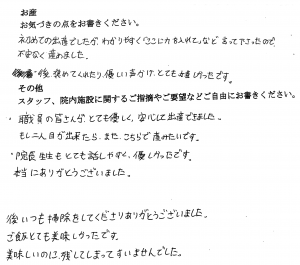 お産
お気づきの点をお書きください。
初めての出産でしたが、わかりやすく「ここに力を入れて」など言って下さったので、
不安なく産めました。
後、褒めてくれたり、優しい声かけ、とても嬉しかったです。
その他
スタッフ、院内施設に関するご指摘やご要望などご自由にお書きください。
・職員の皆さんが、とても優しく、安心して出産できました。
もし二人目が出来たら、また、こちらで産みたいです。
・院長先生もとても話しやすく、優しかったです。
本当にありがとうございました。
後いつも掃除をしてくださりありがとうございました。
ご飯とても美味しかったです。
美味しいのに、残してしまってすいませんでした。